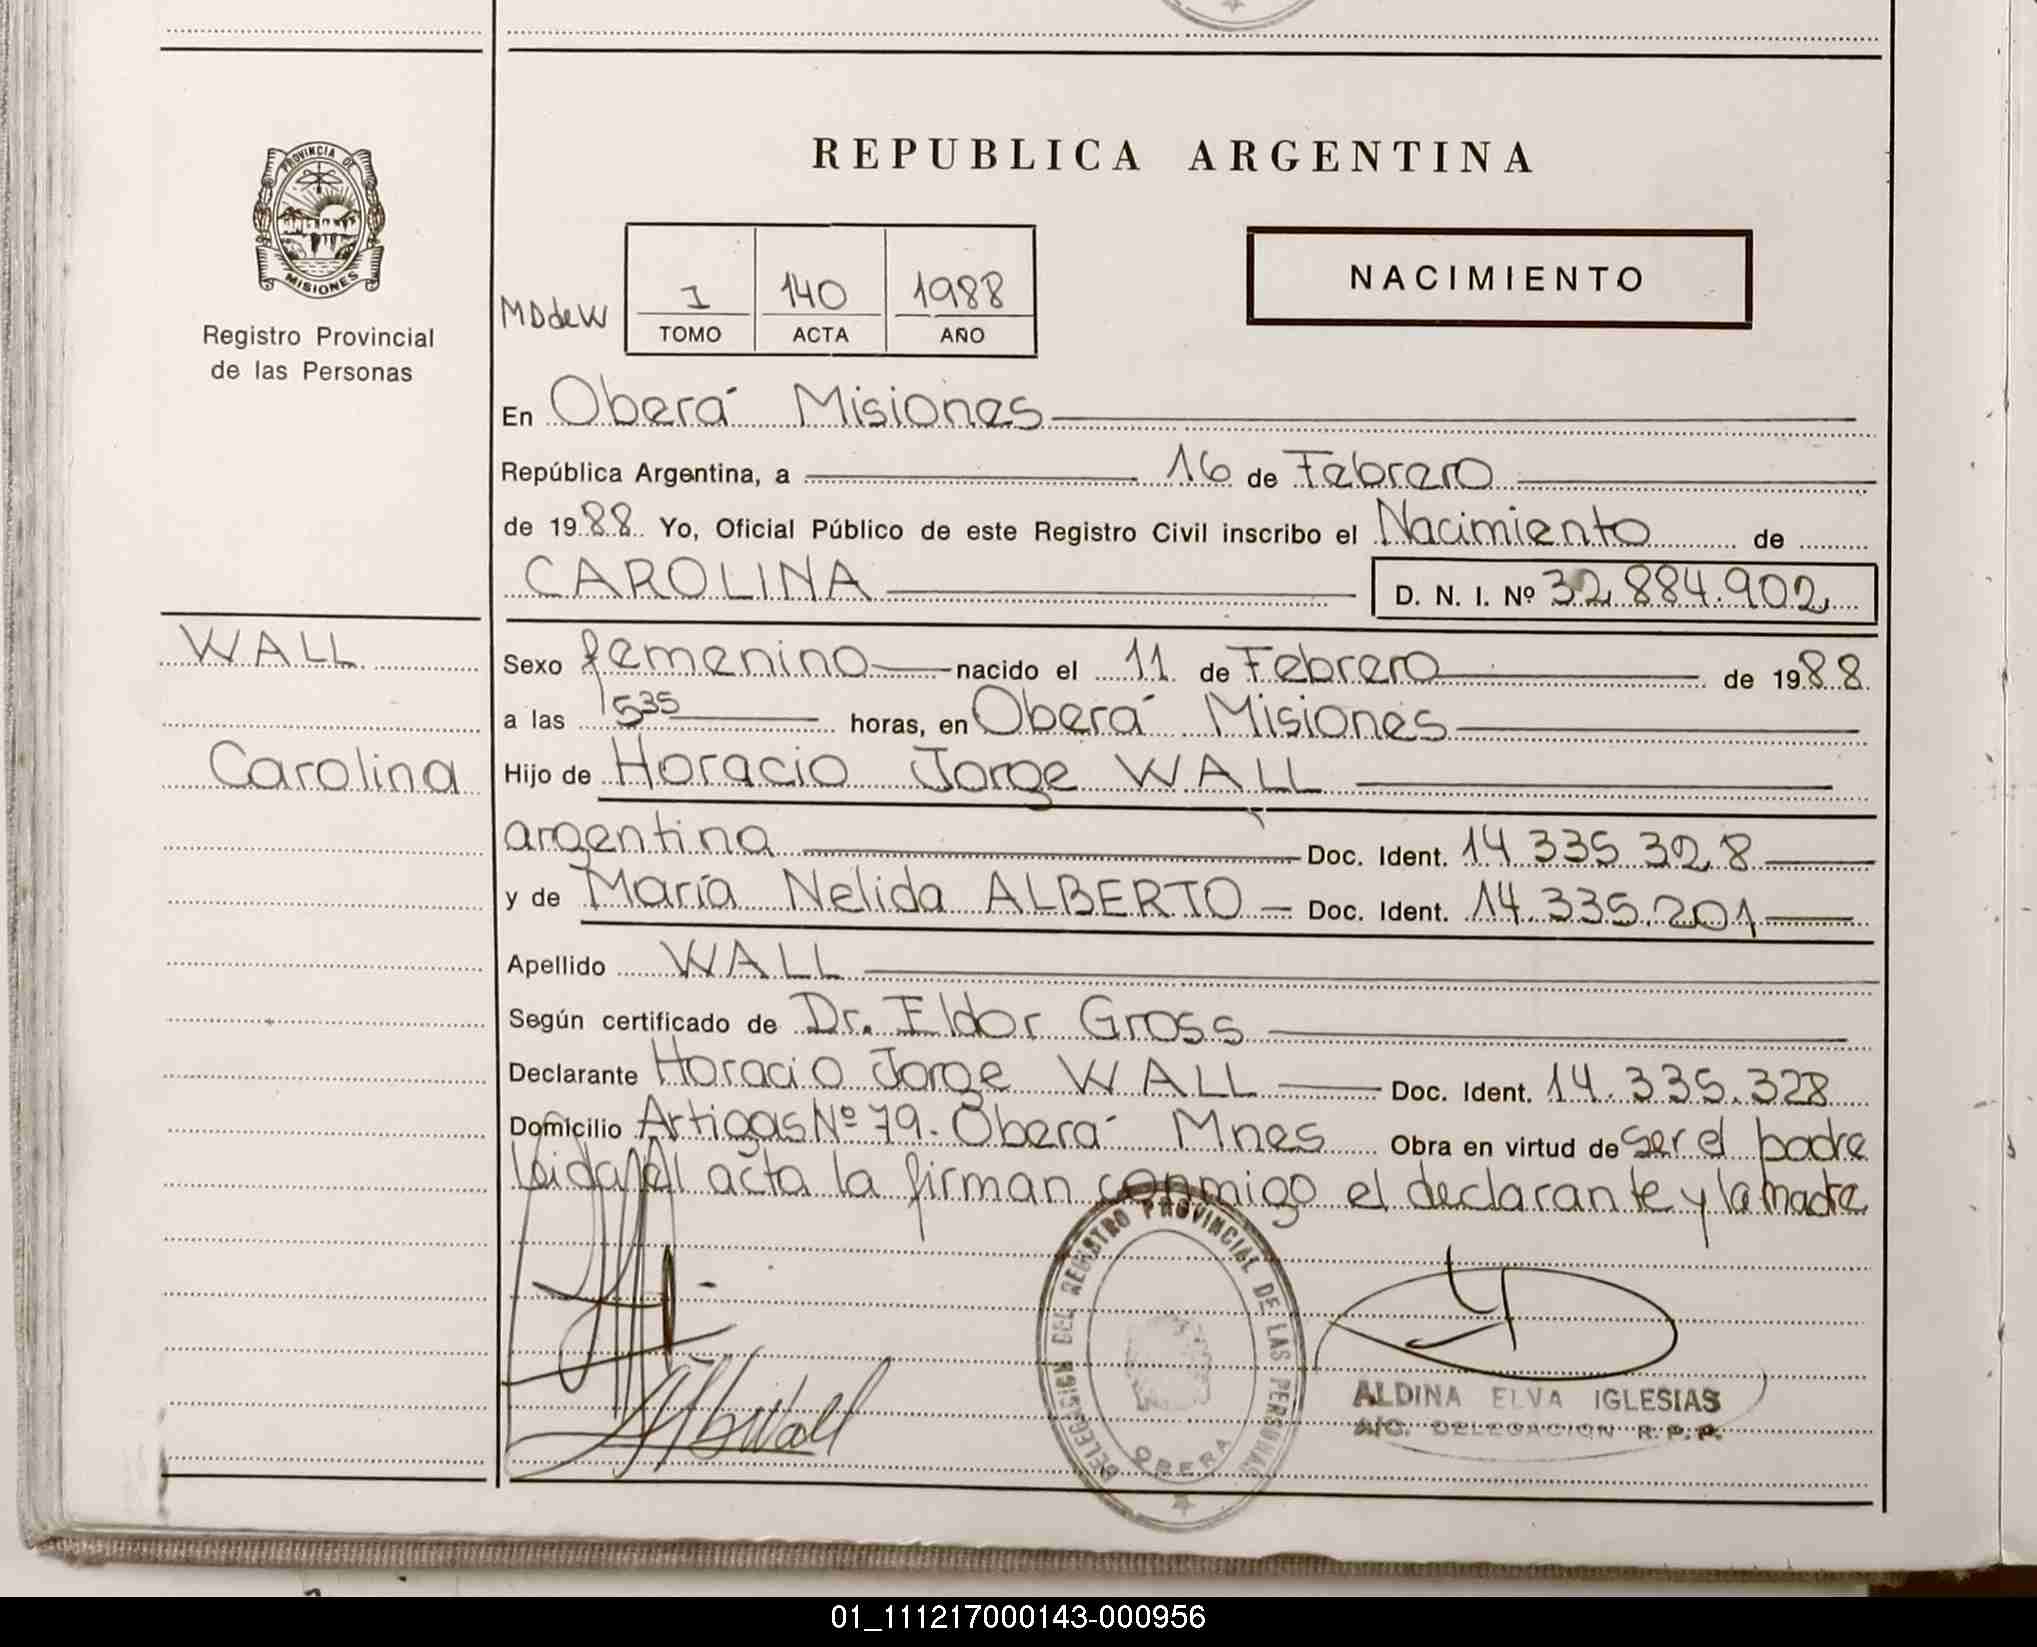 PROVINCIA DE
MISIONES
Registro Provincial
de las Personas
WALL
Carolina
REPUBLICA ARGENTINA
MDdeW
I 140 1988
TOMO ACTA AÑO
NACIMIENTO
En Oberá Misiones
República Argentina, a 16 de Febrero
de 1988 Yo, Oficial Público de este Registro Civil inscribo el Nacimiento de
CAROLINA D. N. I. Nº 32.884.902
Sexo femenino nacido el 11 de Febrero de 1988
a las 5 35 horas, en Oberá Misiones
Hijo de Horacio Jorge WALL
argentina Doc. Ident. 14 335 328
y de María Nelida ALBERTO Doc. Ident. 14.335.201
Apellido WALL
Según certificado de Dr. Eldor Gross
Declarante Horacio Jorge WALL Doc. Ident. 14.335.328
Domicilio Artigas Nº 79. Oberá Mnes Obra en virtud de ser el padre
Leida el acta la firman conmigo el declarante y la madre
DELEGACION DEL REGISTRO PROVINCIAL DE LAS PERSONAS
OBERA
ALDINA ELVA IGLESIAS
A/C. DELEGACION R.P.P.
01_111217000143-000956